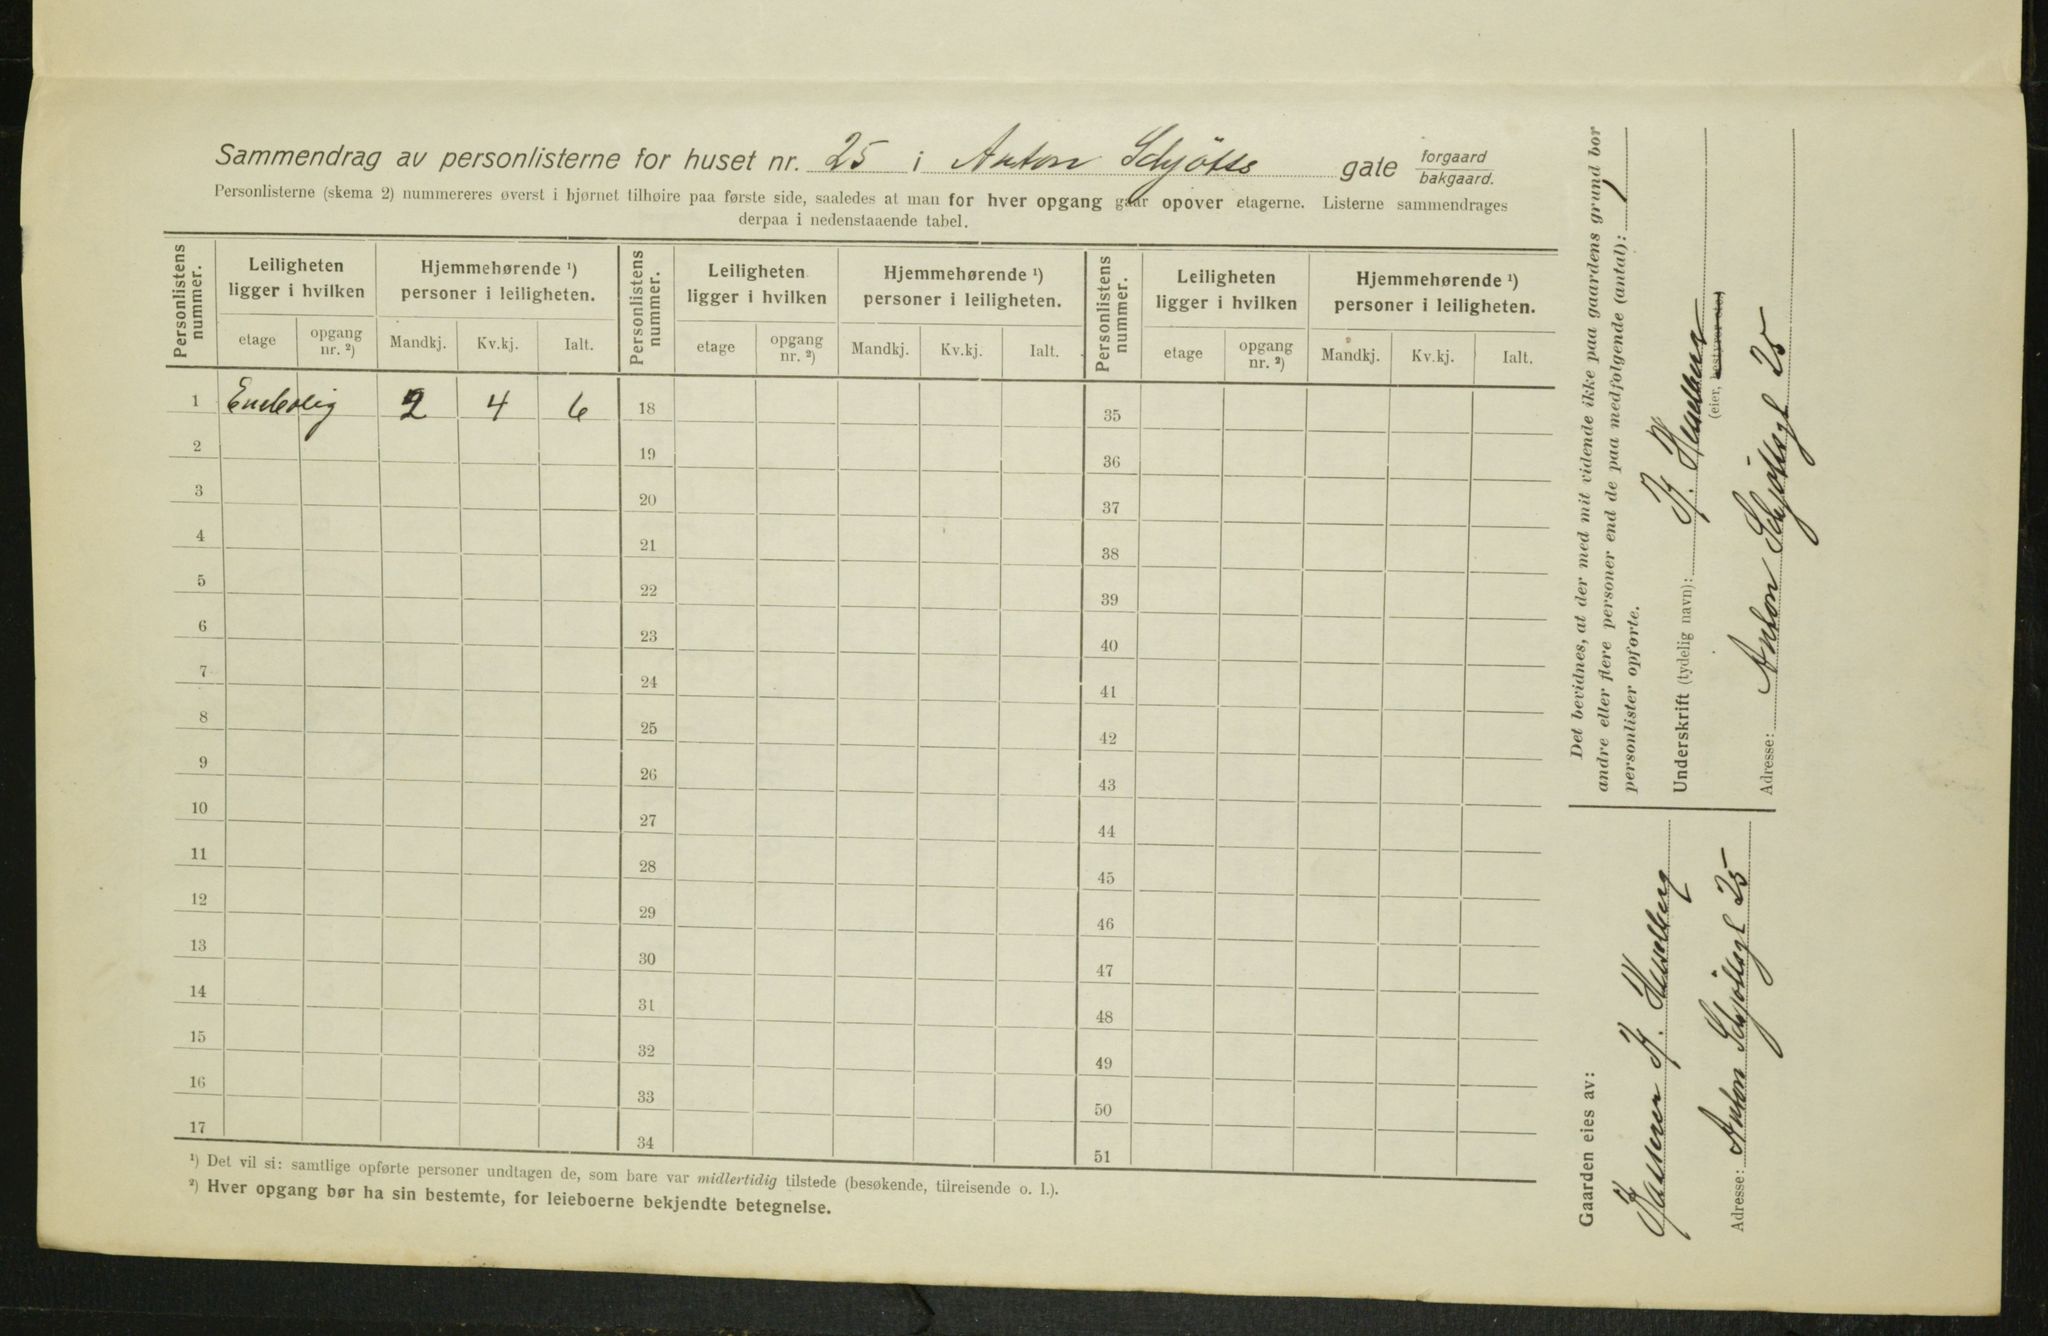 Sammendrag av personlisterne for huset nr. 25 i Anton Schjötts gate forgaard bakgaard.
Personlisterne (skema 2) nummereres øverst i hjørnet tilhøire paa første side, saaledes at man for hver opgang gaar opover etagerne. Listerne sammendrages
derpaa i nedenstaaende tabel.
Personlistens nummer. Leiligheten ligger i hvilken Hjemmehørende ¹) personer i leiligheten. Personlistens nummer. Leiligheten ligger i hvilken Hjemmehørende ¹) personer i leiligheten. Personlistens nummer. Leiligheten ligger i hvilken Hjemmehørende ¹) personer i leiligheten.
etage opgang nr. ²) Mandkj. Kv.kj. Ialt. etage opgang nr. ²) Mandkj. Kv.kj. Ialt. etage opgang nr. ²) Mandkj. Kv.kj. Ialt.
1 Enebolig 2 4 6 18 35
2 19 36
3 20 37
4 21 38
5 22 39
6 23 40
7 24 41
8 25 42
9 26 43
10 27 44
11 28 45
12 29 46
13 30 47
14 31 48
15 32 49
16 33 50
17 34 51
¹) Det vil si: samtlige opførte personer undtagen de, som bare var midlertidig tilstede (besøkende, tilreisende o. l.).
²) Hver opgang bør ha sin bestemte, for leieboerne bekjendte betegnelse.
Gaarden eies av:
K. Hesselberg
Adresse: Anton Schjöttsgt 25
Det bevidnes, at der med mit vidende ikke paa gaardens grund bor
andre eller flere personer end de paa medfølgende (antal): 1
personlister opførte.
Underskrift (tydelig navn): K.
(eier, bestyrer etc.)
Adresse: Anton Schjöttsgt 25